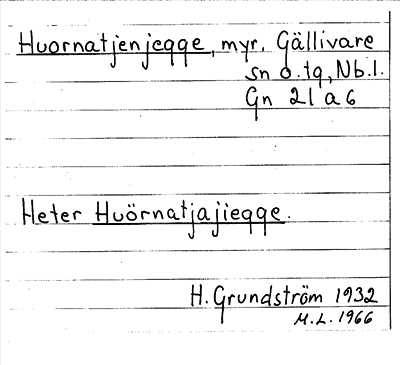 Huornatjenjegge, myr, Gällivare
sn o. tg, Nb.l.
Gn 21 a 6
Heter Huörnatjajiegge.
H. Grundström 1932
M.L. 1966